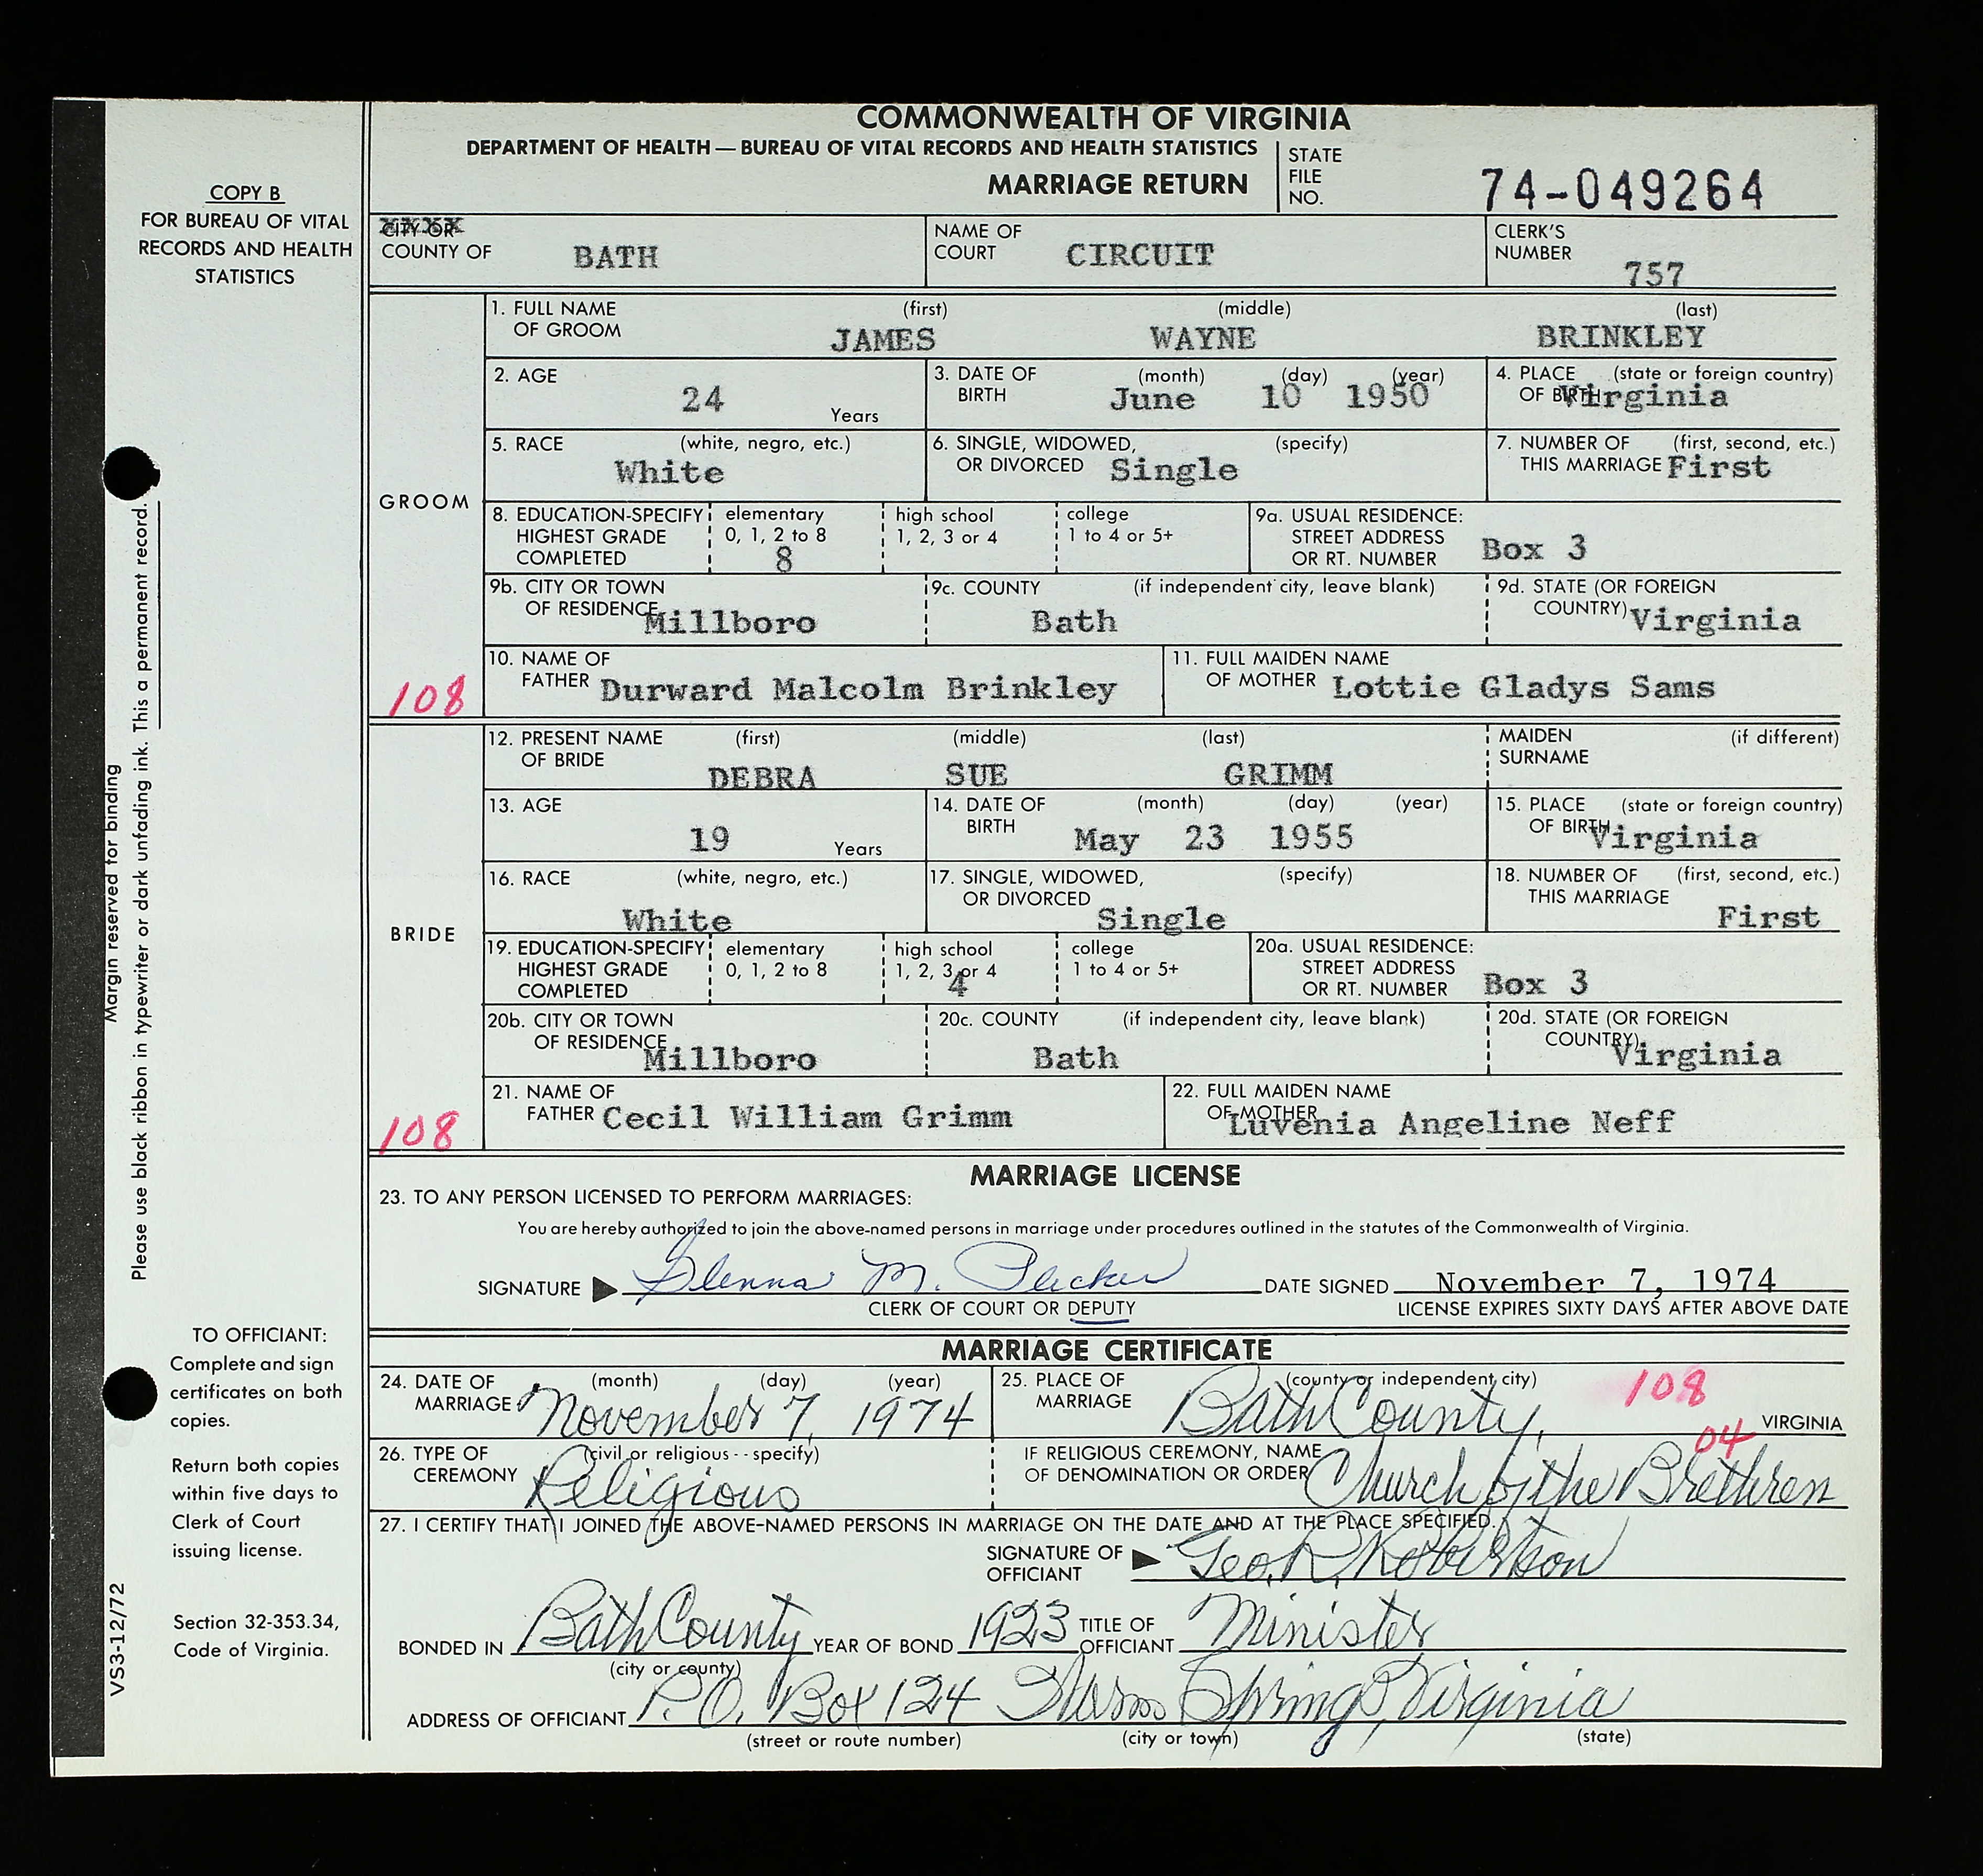 COMMONWEALTH OF VIRGINIA
DEPARTMENT OF HEALTH — BUREAU OF VITAL RECORDS AND HEALTH STATISTICS
MARRIAGE RETURN
STATE FILE NO. 74-049264
COPY B
FOR BUREAU OF VITAL
RECORDS AND HEALTH
STATISTICS
CITY OR
COUNTY OF BATH
NAME OF COURT CIRCUIT
CLERK'S NUMBER 757
GROOM
108
1. FULL NAME OF GROOM (first) JAMES (middle) WAYNE (last) BRINKLEY
2. AGE 24 Years
3. DATE OF BIRTH (month) June (day) 10 (year) 1950
4. PLACE OF BIRTH (state or foreign country) Virginia
5. RACE (white, negro, etc.) White
6. SINGLE, WIDOWED, OR DIVORCED (specify) Single
7. NUMBER OF THIS MARRIAGE (first, second, etc.) First
8. EDUCATION-SPECIFY HIGHEST GRADE COMPLETED
elementary 0, 1, 2 to 8 8
high school 1, 2, 3 or 4
college 1 to 4 or 5+
9a. USUAL RESIDENCE: STREET ADDRESS OR RT. NUMBER Box 3
9b. CITY OR TOWN OF RESIDENCE Millboro
9c. COUNTY (if independent city, leave blank) Bath
9d. STATE (OR FOREIGN COUNTRY) Virginia
10. NAME OF FATHER Durward Malcolm Brinkley
11. FULL MAIDEN NAME OF MOTHER Lottie Gladys Sams
BRIDE
108
12. PRESENT NAME OF BRIDE (first) DEBRA (middle) SUE (last) GRIMM
MAIDEN SURNAME (if different)
13. AGE 19 Years
14. DATE OF BIRTH (month) May (day) 23 (year) 1955
15. PLACE OF BIRTH (state or foreign country) Virginia
16. RACE (white, negro, etc.) White
17. SINGLE, WIDOWED, OR DIVORCED (specify) Single
18. NUMBER OF THIS MARRIAGE (first, second, etc.) First
19. EDUCATION-SPECIFY HIGHEST GRADE COMPLETED
elementary 0, 1, 2 to 8
high school 1, 2, 3 or 4 4
college 1 to 4 or 5+
20a. USUAL RESIDENCE: STREET ADDRESS OR RT. NUMBER Box 3
20b. CITY OR TOWN OF RESIDENCE Millboro
20c. COUNTY (if independent city, leave blank) Bath
20d. STATE (OR FOREIGN COUNTRY) Virginia
21. NAME OF FATHER Cecil William Grimm
22. FULL MAIDEN NAME OF MOTHER Luvenia Angeline Neff
MARRIAGE LICENSE
23. TO ANY PERSON LICENSED TO PERFORM MARRIAGES:
You are hereby authorized to join the above-named persons in marriage under procedures outlined in the statutes of the Commonwealth of Virginia.
SIGNATURE Glenna M. Plecker DATE SIGNED November 7, 1974
CLERK OF COURT OR DEPUTY LICENSE EXPIRES SIXTY DAYS AFTER ABOVE DATE
MARRIAGE CERTIFICATE
24. DATE OF MARRIAGE (month) (day) (year) November 7, 1974
25. PLACE OF MARRIAGE (county or independent city) Bath County, 108 VIRGINIA
26. TYPE OF CEREMONY (civil or religious -- specify) Religious
IF RELIGIOUS CEREMONY, NAME OF DENOMINATION OR ORDER Church of the Brethren 04
27. I CERTIFY THAT I JOINED THE ABOVE-NAMED PERSONS IN MARRIAGE ON THE DATE AND AT THE PLACE SPECIFIED.
SIGNATURE OF OFFICIANT Geo. R. Robertson
BONDED IN Bath County YEAR OF BOND 1923 TITLE OF OFFICIANT Minister
(city or county)
ADDRESS OF OFFICIANT P.O. Box 124 Warm Springs, Virginia
(street or route number) (city or town) (state)
Margin reserved for binding
Please use black ribbon in typewriter or dark unfading ink. This a permanent record.
TO OFFICIANT:
Complete and sign
certificates on both
copies.
Return both copies
within five days to
Clerk of Court
issuing license.
Section 32-353.34,
Code of Virginia.
VS3-12/72